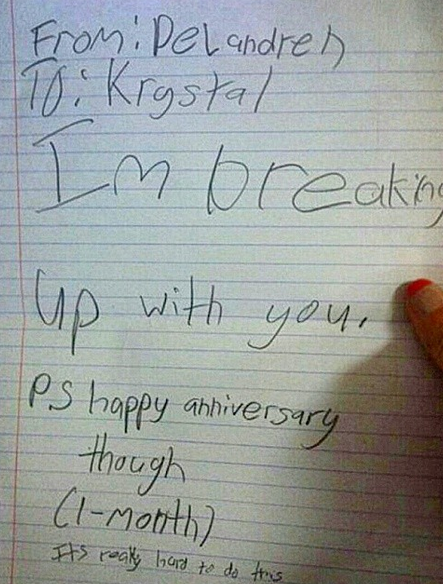 From: DeLandren
To: Krystal
Im breaking
up with you.
PS happy anniversary
though
(1-month)
Its really hard to do this